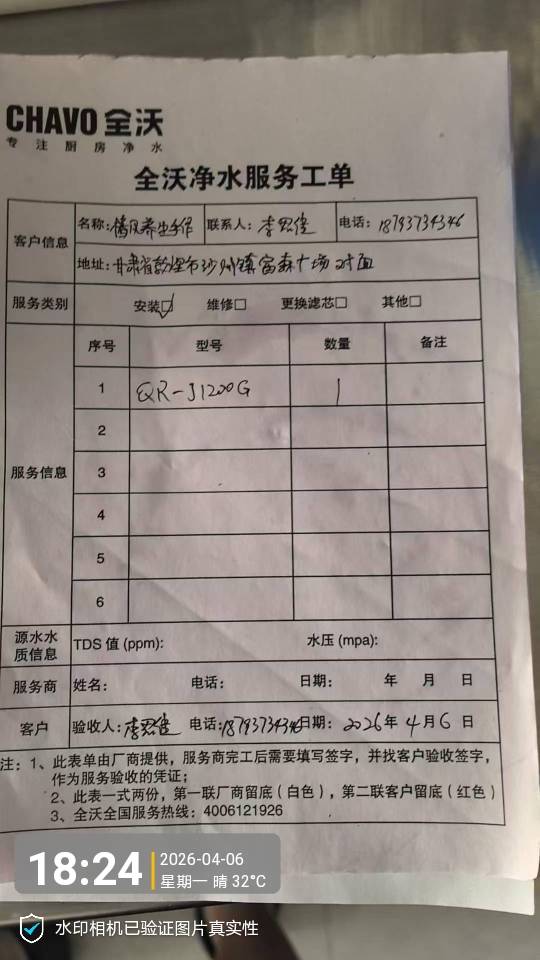 CHAVO 全沃
专注厨房净水
全沃净水服务工单
客户信息 名称: 养生 联系人: 李 电话: 18793734346
地址: 甘肃省敦煌市沙州镇富森广场对面
服务类别 安装☑ 维修□ 更换滤芯□ 其他□
服务信息 序号 型号 数量 备注
1 QR-J1200G 1
2
3
4
5
6
源水水质信息 TDS 值 (ppm): 水压 (mpa):
服务商 姓名: 电话: 日期: 年 月 日
客户 验收人: 李 电话: 18793734346 日期: 2026年 4月 6日
注: 1、此表单由厂商提供，服务商完工后需要填写签字，并找客户验收签字，
作为服务验收的凭证；
2、此表一式两份，第一联厂商留底（白色），第二联客户留底（红色）
3、全沃全国服务热线：4006121926
18:24 2026-04-06
星期一 晴 32°C
水印相机已验证图片真实性